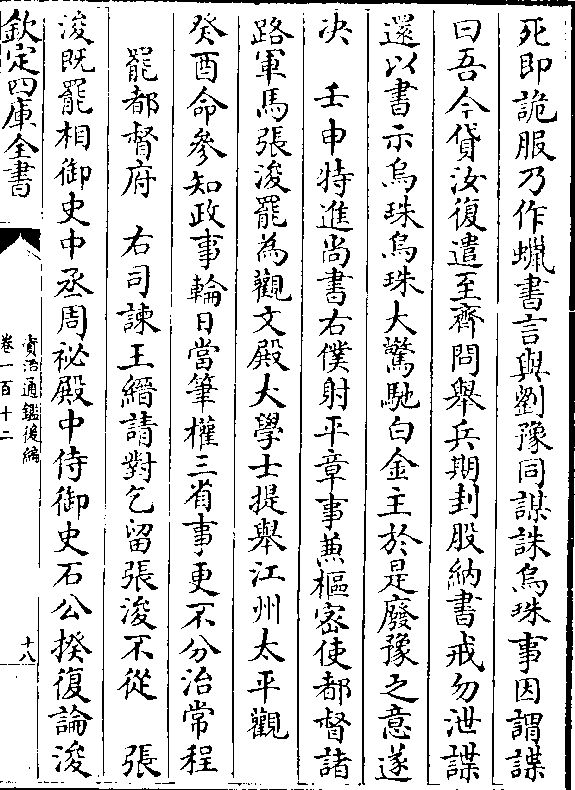 死即詭服乃作蠟書言與劉豫同謀誅烏珠事因謂諜
曰吾今貸汝復遣至齊問舉兵期刲股納書戒勿泄諜
還以書示烏珠烏珠大驚馳白金主於是廢豫之意遂
決　壬申特進尚書右僕射平章事兼樞密使都督諸
路軍馬張浚罷為觀文殿大學士提舉江州太平觀
癸酉命參知政事輪日當筆權三省事更不分治常程
罷都督府　右司諫王縉請對乞留張浚不從　張
浚既罷相御史中丞周祕殿中侍御史石公揆復論浚
欽定四庫全書
資治通鑑後編
卷一百十二
十八